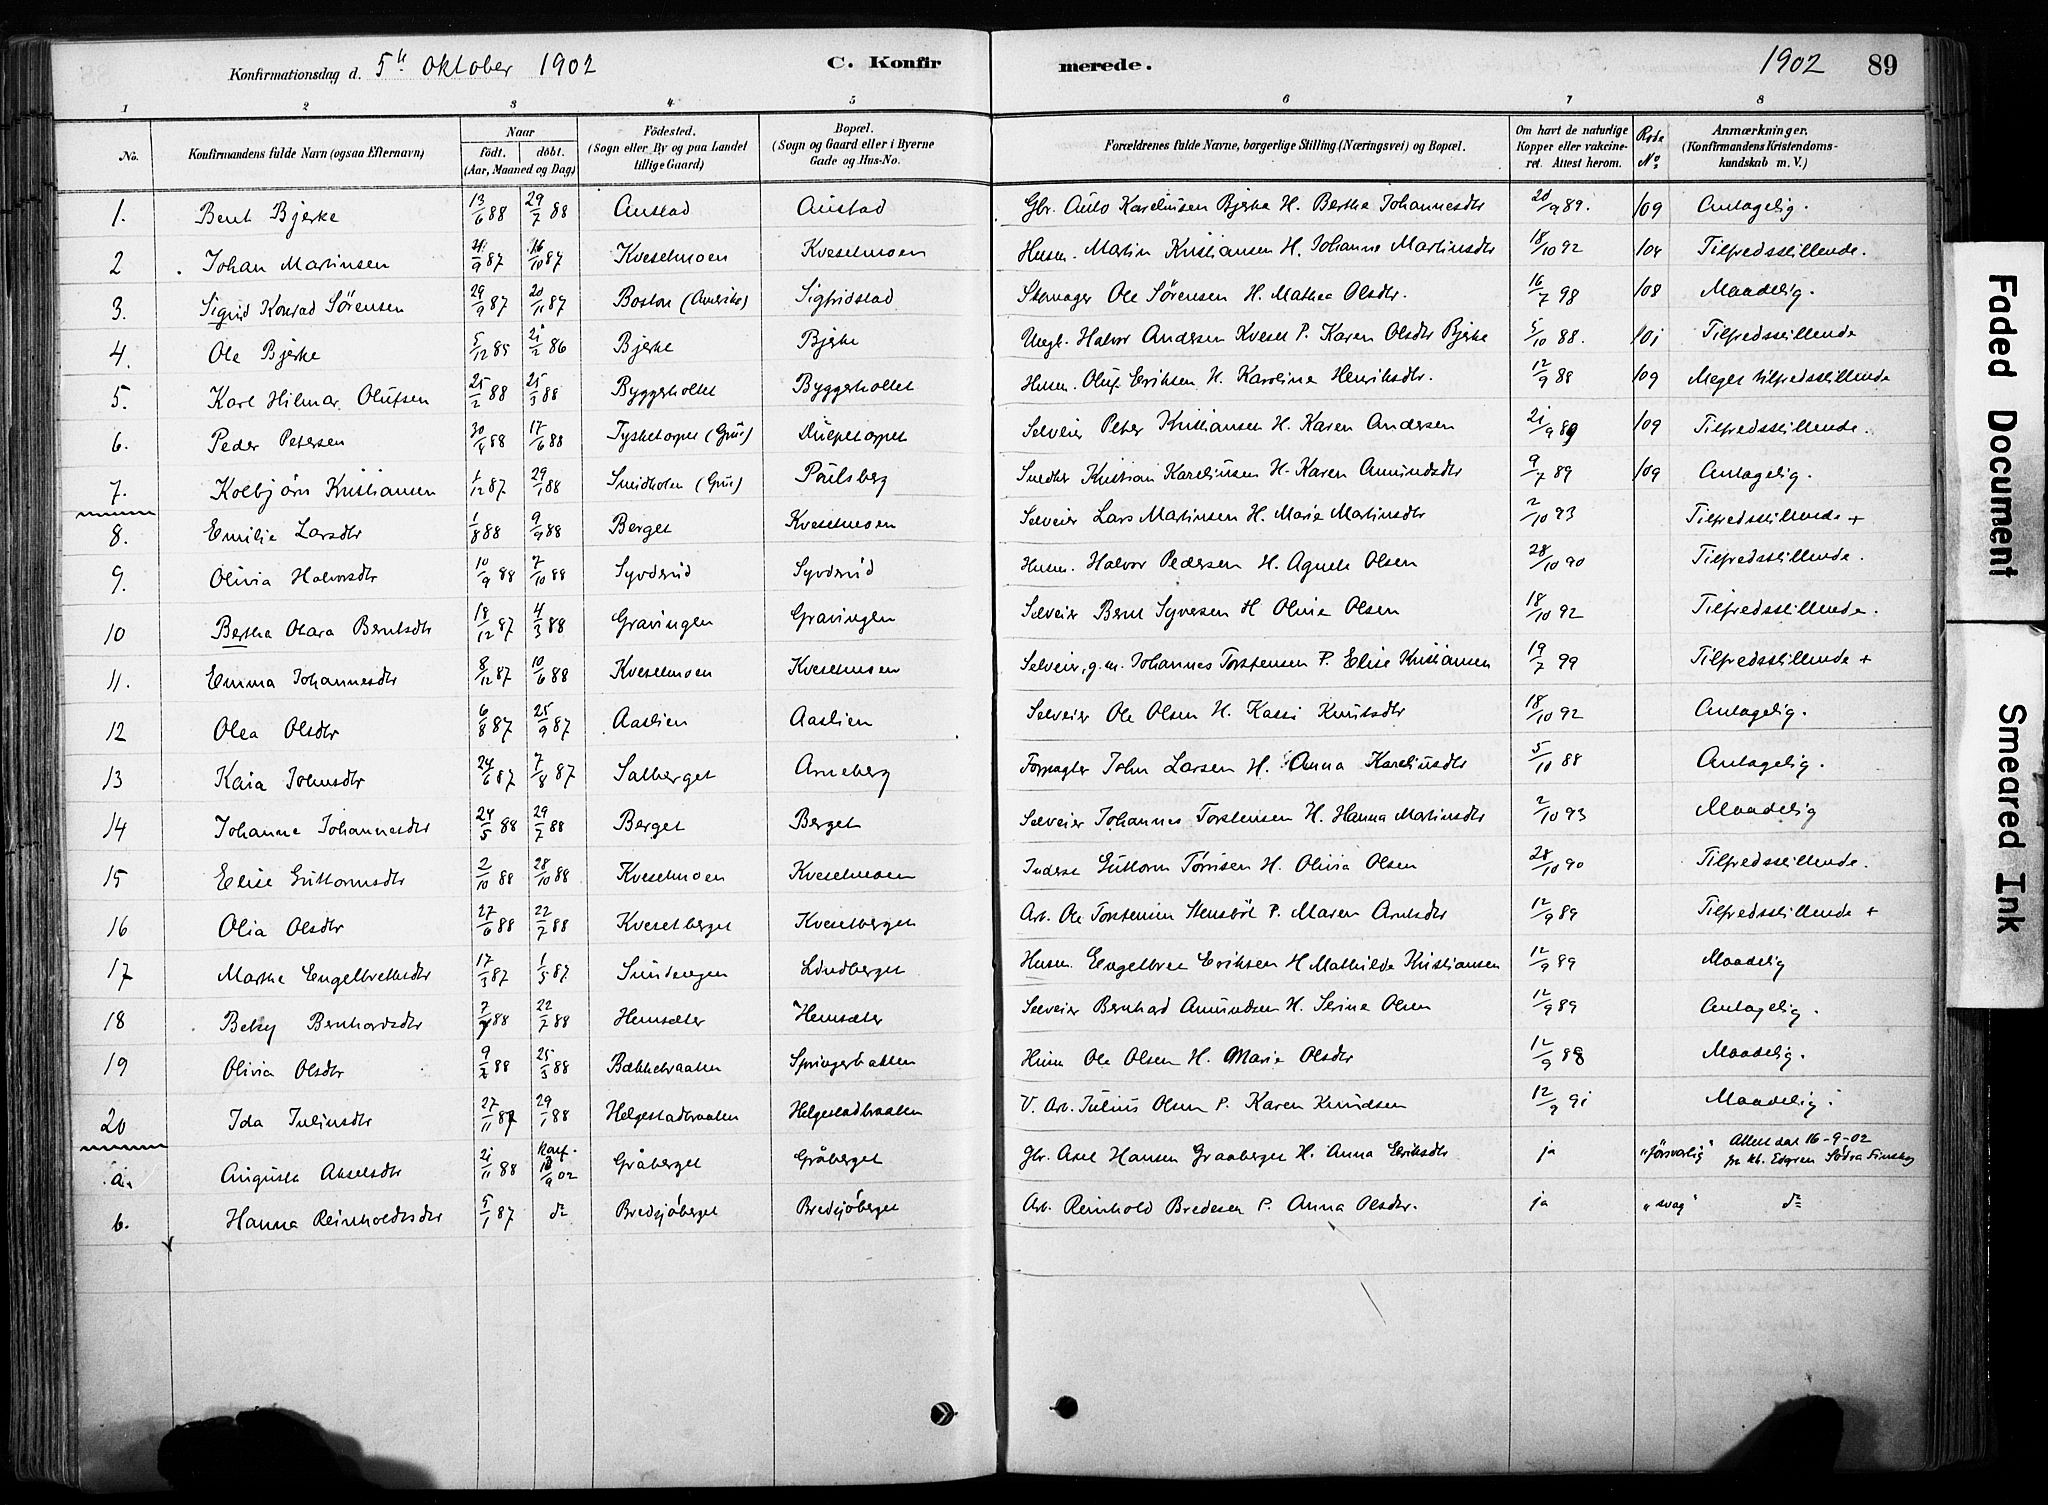 Konfirmationsdag d. 5te Oktober 1902 C. Konfirmerede. 1902 89
1 2 3 4 5 6 7 8
No. Konfirmandens fulde Navn (ogsaa Efternavn) Naar født. døbt. (Aar, Maaned og Dag) Födested. (Sogn eller By og paa Landet tillige Gaard) Bopæl. (Sogn og Gaard eller i Byerne Gade og Hus-No. Forældrenes fulde Navne, borgerlige Stilling (Næringsvei) og Bopæl. Om havt de naturlige Kopper eller vakcineret. Attest herom. Rode No. Anmærkninger. (Konfirmandens Kristendomskundskab m. V.)
1. Bernt Bjerke 13/6 88 29/7 88 Austad Austad Gbr. Auto Kareliusen Bjerke H. Berthe Johannesdtr 20/9 89. 109 Antagelig.
2 Johan Martinsen 4/9 87 16/10 87 Kveselmoen Kveselmoen Husm. Martin Kristiansen H. Johanne Martinsdtr 18/10 92 104 Tilfredsstillende.
3. Sigrid Konrad Sörensen 29/9 87 20/11 87 Boston (Amerika) Sigfridstad Skomager Ole Sörensen H. Mathea Olsdtr. 16/7 98 108 Maadelig.
4. Ole Bjerke 5/12 85 21/2 86 Bjerke Bjerke Ungk. Halvor Andersen Kvesel P. Karen Olsdtr Bjerke 5/10 88. 101 Tilfredsstillende
5. Karl Hilmar Olufsen 25/2 88 25/3 88 Byggeholtet Byggeholtet Husm. Oluf Eriksen H. Karoline Henriksdtr. 12/9 88 109 Meget tilfredsstillende
6. Peder Petersen 30/4 88 17/6 88 Tysketorpet (Grue) Selveier Peter Kristiansen H. Karen Andersen 21/9 89 109 Tilfredsstillende.
7. Kolbjörn Kristiansen 1/12 87 29/1 88 Smidholen (Grue) Paulsberg Kristian Kareliusen H. Karen Amundsdtr 9/7 89 109 Antagelig.
8. Emilie Larsdtr 1/8 88 9/9 88 Berget Kveselmoen Selveier Lars Martinsen H. Marie Martinsdtr 2/10 93 Tilfredsstillende +
9. Olivia Halvorsdtr 10/9 88 7/10 88 Syvdsrud Syvdsrud Husm. Halvor Pedersen H. Agnete Olsen 28/10 90 Tilfredsstillende.
10 Berthe Olara Berntsdtr 18/12 87 4/3 88 Gravingen Gravingen Selveier Bernt Syversen H Oline Olsen 18/10 92 Tilfredsstillende.
11. Emma Johannesdtr 8/12 87 10/6 88 Kveselmoen Kveselmoen Selveier, g.m. Johannes Torstensen P. Elise Kristiansen 19/7 99 Tilfredsstillende +
12 Olea Olsdtr 6/8 87 25/9 87 Aaslien Aaslien Selveier Ole Olsen H. Kassi Knutsdtr 18/10 92 Antagelig.
13 Kaia Johnsdtr 24/6 87 7/8 87 Salberget Arneberg Forpagter John Larsen H. Anna Kareliusdtr 5/10 88 Antagelig.
14 Johanne Johannesdtr 24/5 88 29/7 88 Berget Berget Selveier Johannes Torstensen H. Hanna Martinsdtr 2/10 93 Maadelig
15 Elise Guttormsdtr 2/10 88 28/10 88 Kveselmoen Kveselmoen Inderst Guttorm Törrisen H. Olivia Olsen 28/10 90 Tilfredsstillende.
16 Olia Olsdtr 27/6 88 22/7 88 Kveselberget Kveselberget Arb. Ole Torstensen Stensböl P. Maren Arntsdtr 12/9 89 Tilfredsstillende +
17 Marthe Engelbrethsdtr 17/3 87 1/5 87 Sundengen Lindberget Husm. Engelbret Eriksen H Mathilde Kristiansen 12/9 89 Maadelig
18 Betsy Bernhardsdtr 7/7 88 22/7 88 Hemsæter Hemsæter Selveier Bernhard Amundsen H. Serine Olsen 12/9 89 Antagelig.
19 Olivia Olsdtr 9/2 88 25/3 88 Bækkebraaten Springerbakken Husm Ole Olsen H. Marie Olsdtr 12/9 88 Maadelig.
20 Ida Juliusdtr 27/11 87 29/1 88 Helgestadbraaten Helgestadbraaten V. Arb. Julius Olsen P. Karen Knudsen 12/9 91 Maadelig.
a. Augusta Akselsdtr 21/11 88 Konf. 13/9 02 Gråberget Gråberget Gbr. Axel Hansen Graaberget H. Anna Eriksdtr ja "försvarlig" Attest dat 16-9-02 fra Kb. Edgren Södra Finskog
b. Hanna Reinholdtsdtr 5/1 87 do Bredsjöberget Bredsjöberget Arb. Reinhold Bredesen P. Anna Olsdtr. ja "svag" do
Faded Document
Smeared Ink